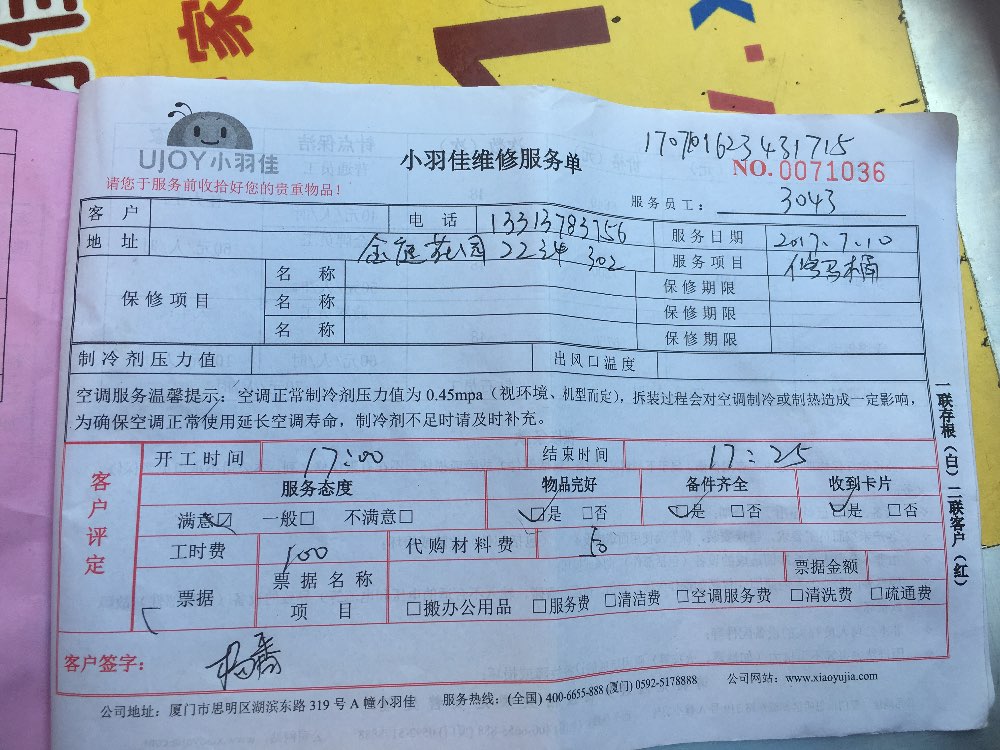 家
UJOY小羽佳
小羽佳维修服务单
170701623431715
NO. 0071036
请您于服务前收拾好您的贵重物品！
服务员工： 3043
客 户 电 话 13313783756 服务日期 2017.7.10
地 址 金庭花园 2234 302 服务项目 修马桶
保修项目 名 称 保修期限
名 称 保修期限
名 称 保修期限
制冷剂压力值 出风口温度
空调服务温馨提示：空调正常制冷剂压力值为 0.45mpa（视环境、机型而定），拆装过程会对空调制冷或制热造成一定影响，
为确保空调正常使用延长空调寿命，制冷剂不足时请及时补充。
客户评定
开工时间 17:00 结束时间 17:25
服务态度 物品完好 备件齐全 收到卡片
满意☑ 一般□ 不满意□ □是 □否 □是 □否 □是 □否
工时费 100 代购材料费 50
票据 票据名称 票据金额
项 目 □搬办公用品 □服务费 □清洁费 □空调服务费 □清洗费 □疏通费
客户签字：
一联存根（白）二联客户（红）
公司地址：厦门市思明区湖滨东路 319 号 A 幢小羽佳 服务热线：(全国) 400-6655-888 (厦门) 0592-5178888 公司网站：www.xiaoyujia.com